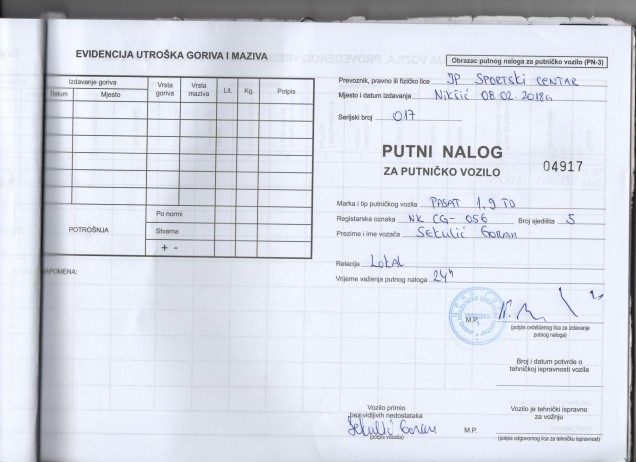 EVIDENCIJA UTROŠKA GORIVA I MAZIVA
Izdavanje goriva
Datum
Mjesto
Vrsta goriva
Vrsta maziva
Lit.
Kg.
Potpis
POTROŠNJA
Po normi
Stvarna
+ -
NAPOMENA:
Obrazac putnog naloga za putničko vozilo (PN-3)
Prevoznik, pravno ili fizičko lice JP SPORTSKI CENTAR
Mjesto i datum izdavanja Nikšić 08.02.2018G
Serijski broj 017
PUTNI NALOG
ZA PUTNIČKO VOZILO
04917
Marka i tip putničkog vozila PASAT 1,9 TD
Registarska oznaka NK CG-056 Broj sjedišta 5
Prezime i ime vozača SEKULIĆ GORAN
Relacija LOKAL
Vrijeme važenja putnog naloga 24h
M.P.
(potpis ovlašćenog lica za izdavanje
putnog naloga)
Broj i datum potvrde o
tehničkoj ispravnosti vozila
Vozilo primio
bez vidljivih nedostataka
Sekulić Goran
(potpis vozača)
M.P.
Vozilo je tehnički ispravno
za vožnju
(potpis odgovornog lica za tehničku ispravnost)